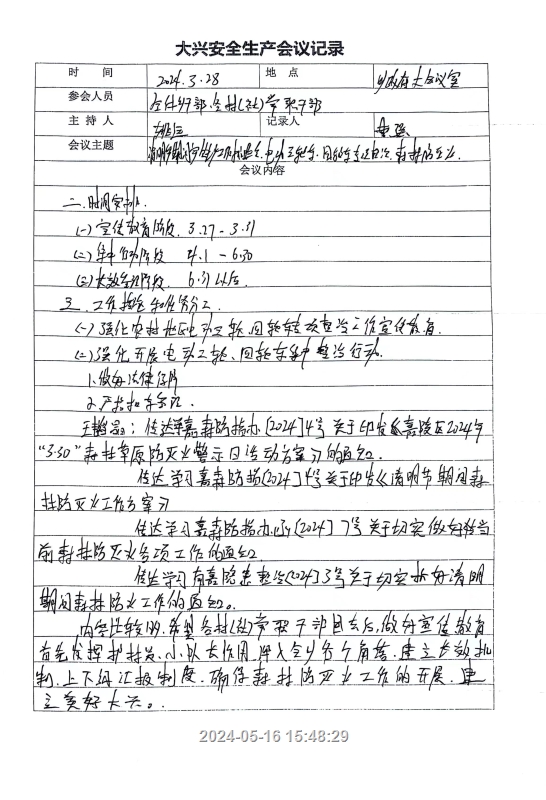 大兴安全生产会议记录
时 间 2024.3.28 地 点 乡政府大会议室
参会人员 全体干部、各村(社)常职干部
主 持 人 记录人
会议主题 电动三轮车、四轮车专项整治、森林防灭火
会议内容
二、时间安排
(一)宣传教育阶段 3.27-3.31
(二)集中行动阶段 4.1-6.30
(三)长效管理阶段 6.31以后
三、工作措施和任务分工
(一)强化农村地区电动三轮、四轮车 工作宣传教育
(二)强化开展电动三轮、四轮车集中整治行动.
1.做好法律
2.严
传达学习嘉森防指办[2024]4号关于印发《嘉陵区2024年
“3.30”森林草原防灭火警示日活动方案》的通知.
传达学习嘉森防指[2024]1号关于印发《清明节期间森
林防灭火工作方案》
传达学习嘉森防指办函[2024]7号关于切实做好当
前森林防灭火各项工作的通知
传达学习 [2024]3号关于切实抓好清明
期间森林防灭火工作的通知。
内容比较明,希望各村(社)常职干部回去后,做好宣传教育
首先发挥护林员、小队长作用,深入至少每个角落,建立长效机
制,上下级汇报制度,确保森林防灭火工作的开展,建
立美好大兴。
2024-05-16 15:48:29